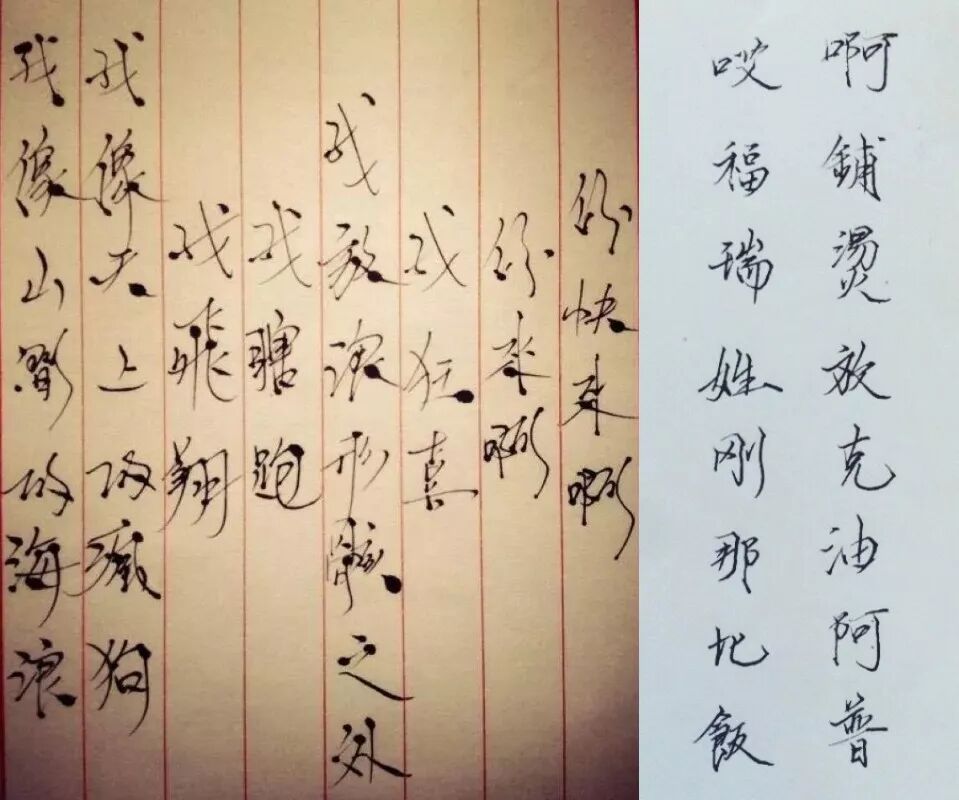 你快来啊
你来啊
我狂喜
我放浪形骸之外
我瞎跑
我飛翔
我像天上的疯狗
我像山間的海浪
啊鋪燙放克油阿普
哎福瑞姓刚那比飯